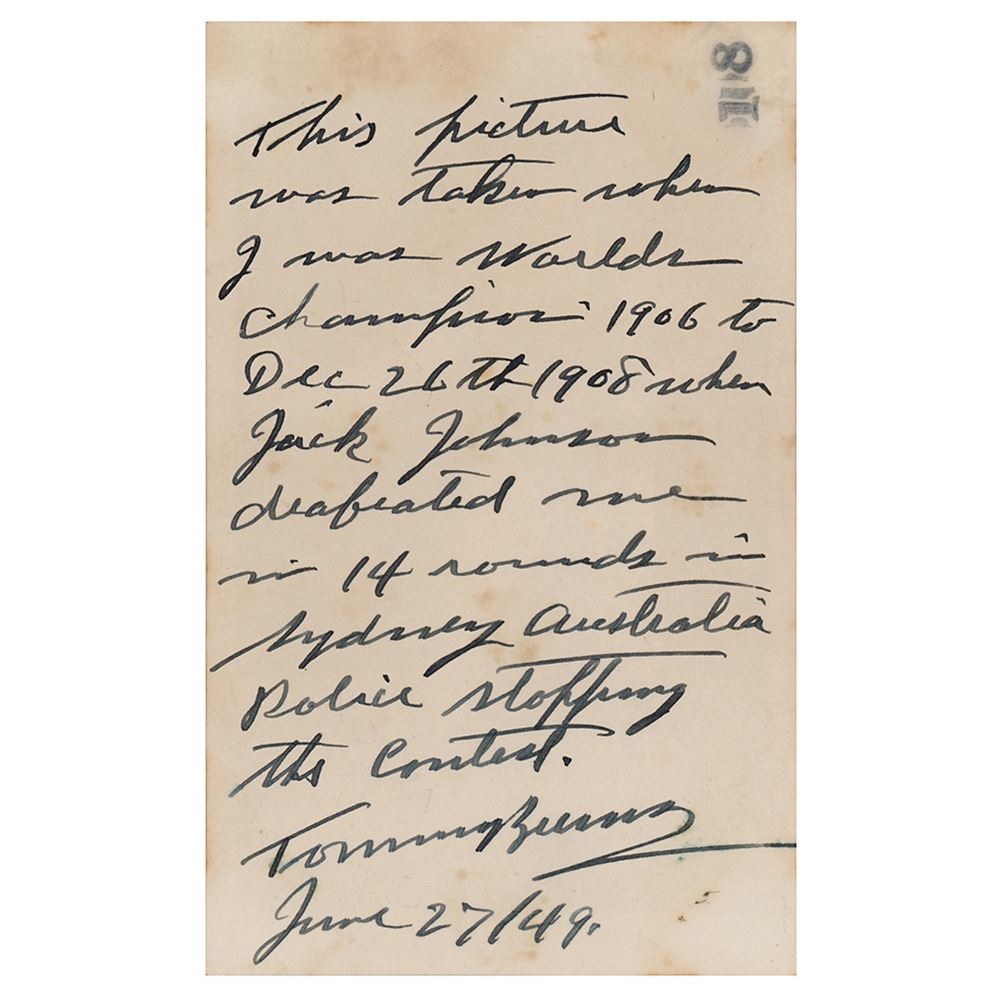 118
This picture
was taken when
I was Worlds
Champion 1906 to
Dec 26th 1908 when
Jack Johnson
deafeated me
in 14 rounds in
Sydney Australia
Police stopping
the Contest.
Tommy Burns
June 27/49.